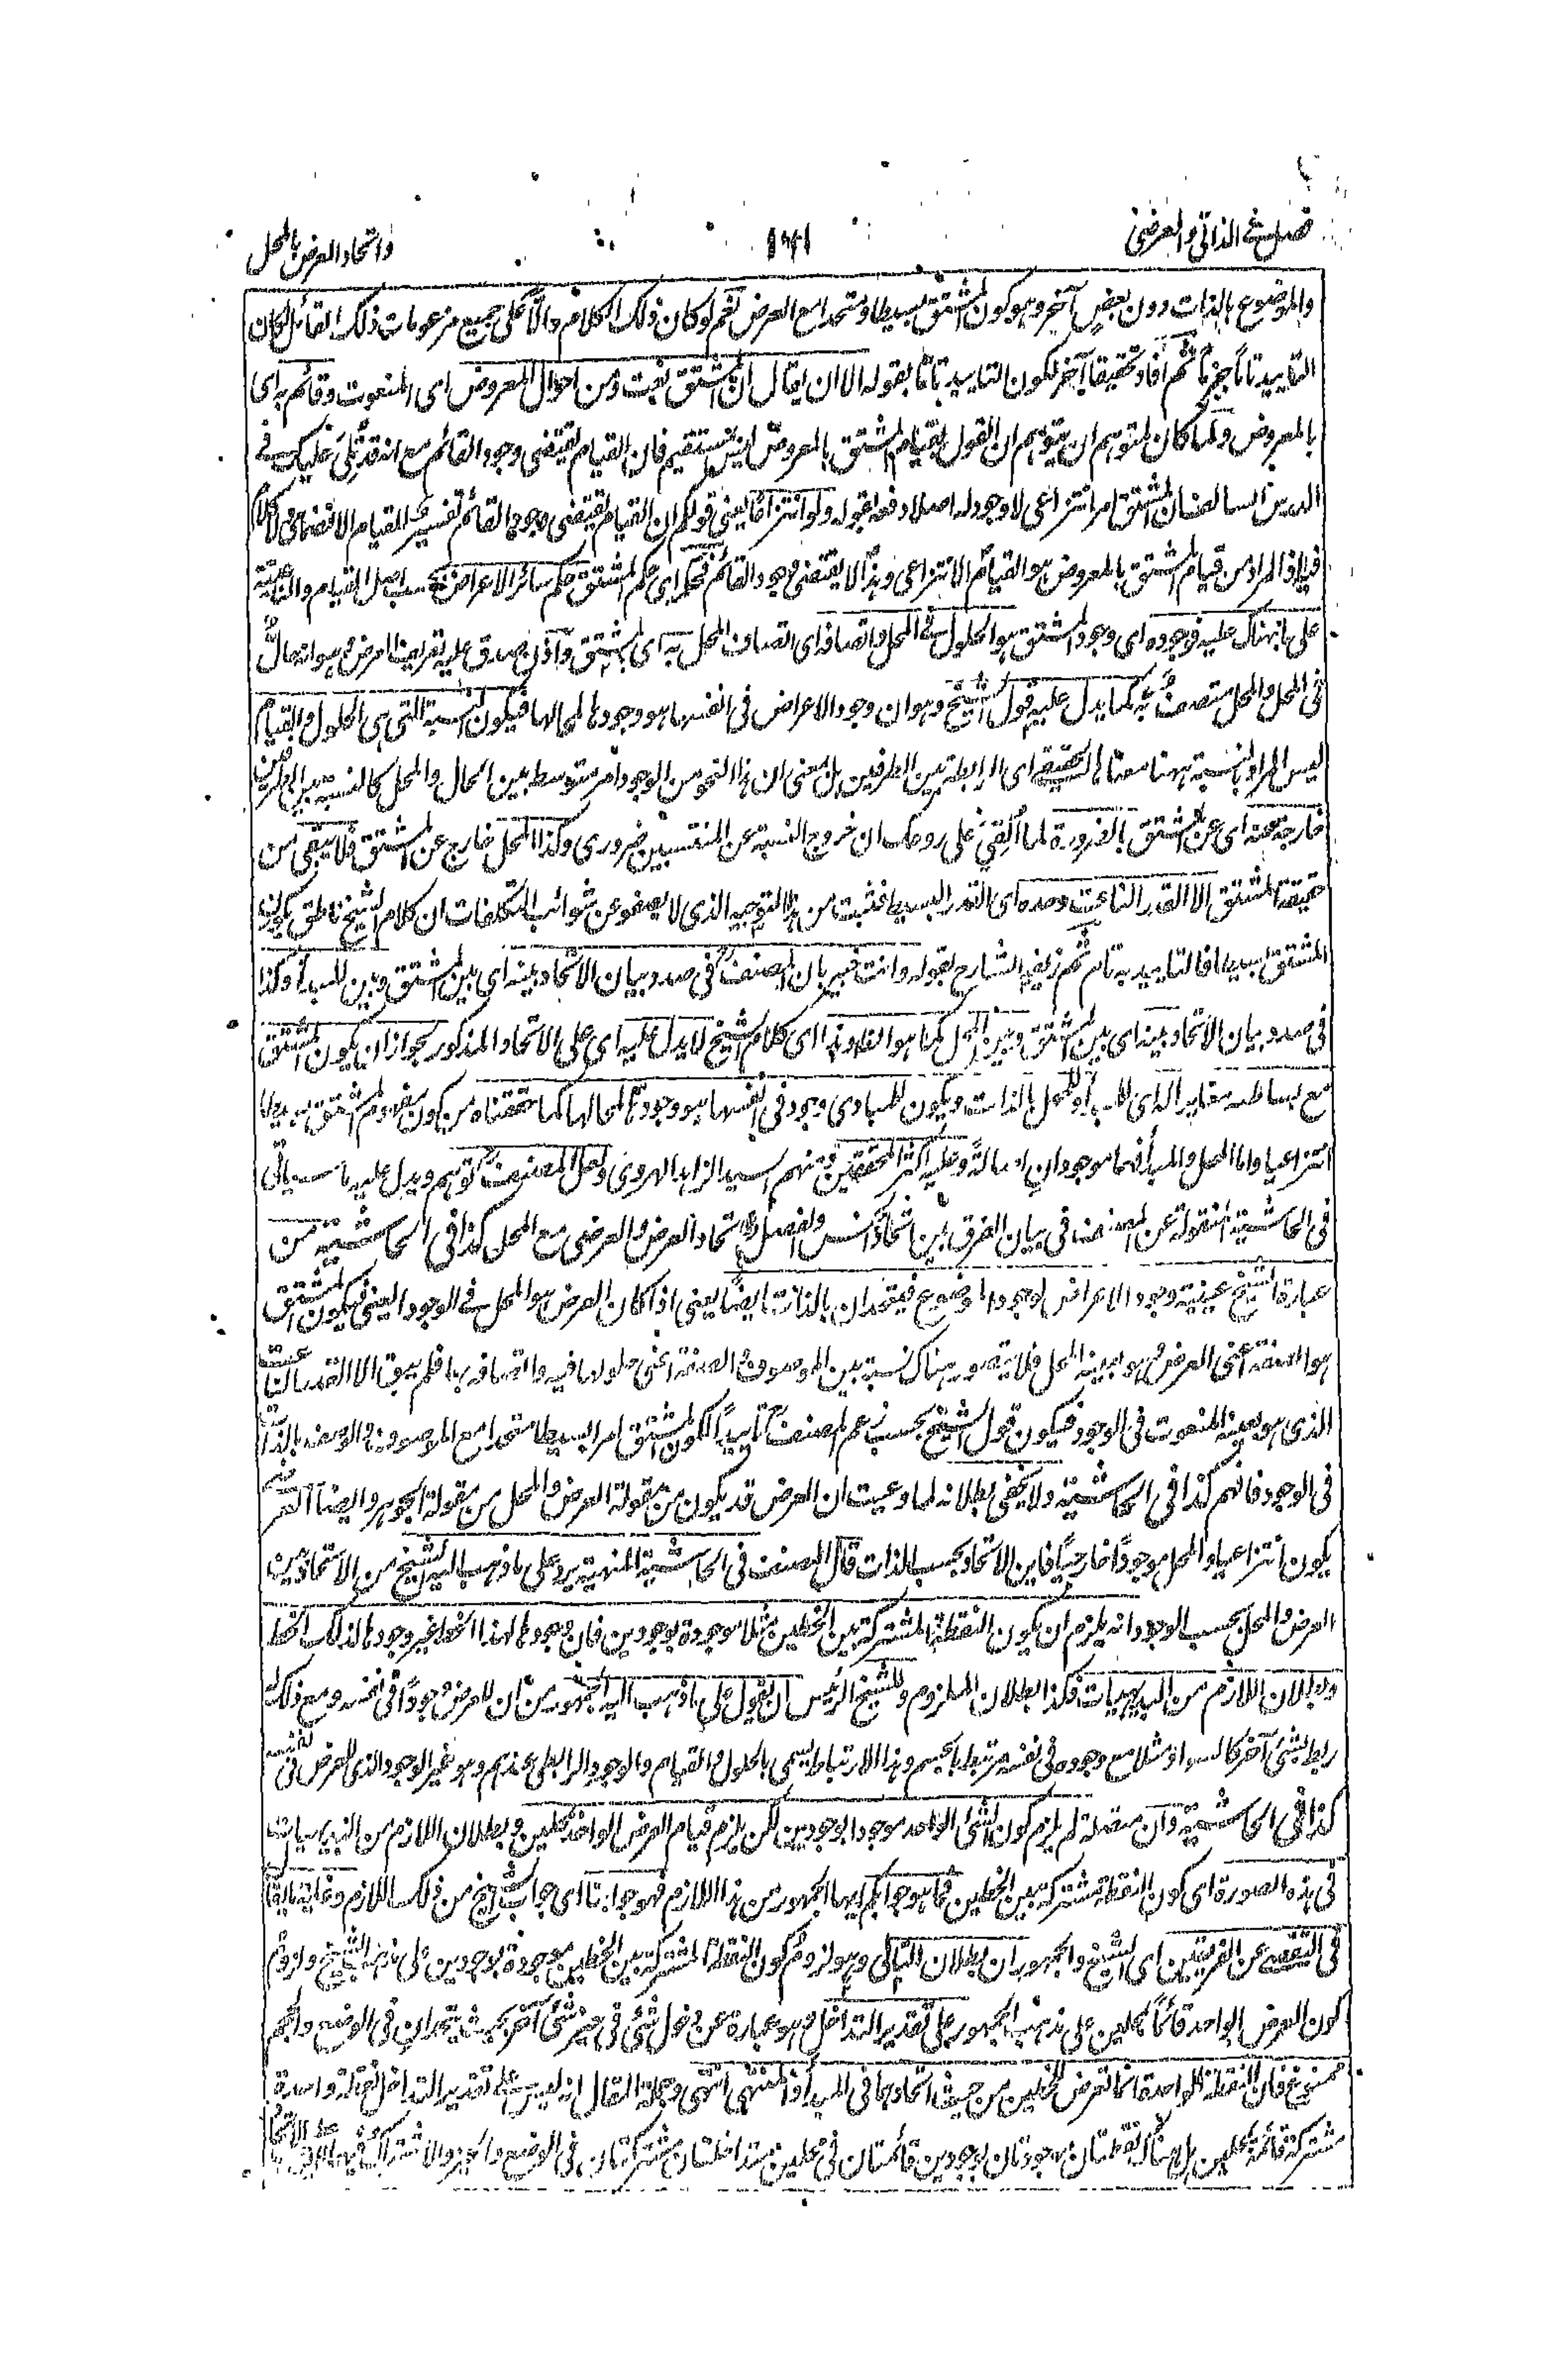 فصل في الذاتي والعرضي
١٦١
واتحاد العرض بالمحل
والموضوع بالذات دون بعض آخر وهو كون المشتق بسيطا ومتحدا مع العرض نعم لو كان ذلك الكلام دالاً على جميع مزعومات ذلك القائل لكان
التاييد تاماً جزماً ثم افاد تحقيقاً آخر لكون التاييد تاماً بقوله الا ان يقال ان المشتق نعت ومن احوال المعروض اى المنعوت وقائم به اى
بالمعروض ولما كان لمتوهم ان يتوهم ان القول بقيام المشتق بالمعروض ليس بمستقيم فان القيام يقتضى وجود القائم مع انه قد تلى عليك فى
الدرس السالف ان المشتق امر انتزاعى لا وجود له اصلا دفعه بقوله ولو انتزاعاً يعنى قولكم ان القيام يقتضى وجود القائم تفسير للقيام الانضمامى ولا كلام
فيه اذ المراد من قيام المشتق بالمعروض هو القيام الانتزاعى وهذا لا يقتضى وجود القائم فحكمه اى حكم المشتق حكم سائر الاعراض بحسب اصل القيام والناعتية
على ما نبهناك عليه فوجوده اى وجود المشتق هو الحلول فى المحل واتصافه اى اتصاف المحل به اى بالمشتق واذن صدق عليه تعريف العرض وهو انه حال
فى المحل والمحل متصف به كما يدل عليه قول الشيخ وهو ان وجود الاعراض فى انفسها هو وجودها لمحالها فيكون النسبة التى هى الحلول والقيام
ليس المراد بالنسبة ههنا معناها الحقيقى اى الرابطة بين الطرفين بل معنى ان هذا النحو من الوجود امر متوسط بين الحال والمحل كالنسبة بين الطرفين
خارجة عنه اى عن المشتق بالضرورة لما القى على روحك ان خروج النسبة عن المنتسبين ضرورى وكذا المحل خارج عن المشتق فلا يبقى من
حقيقة المشتق الا القدر الناعت وحده اى القدر البسيط فثبت من هذا التوجيه الذى لا يصفو عن شوائب التكلفات ان كلام الشيخ ناطق بكون
المشتق بسيطا فالتاييد به تام ثم زيفه الشارح بقوله وانت خبير بان المصنف فى صدد بيان الاتحاد بينه اى بين المشتق وبين المبدأ وكذا
فى صدد بيان الاتحاد بينه اى بين المشتق وبين المحل كما هو الظاهر وهذا اى كلام الشيخ لا يدل عليه اى على الاتحاد المذكور لجواز ان يكون المشتق
مع بساطته مغايرا له اى للمبدأ وللمحل بالذات ويكون للمبادى وجود فى انفسها هو وجودها لمحالها كما حققناه من كون مفهوم المشتق بسيطا
انتزاعيا واما المحل والمبدأ فهما موجودان اصالةً وعليه اكثر المحققين منهم السيد الزاهد الهروى ولعل المصنف توهم ويدل عليه ما سياتى
فى الحاشية المنقولة عن المصنف فى بيان الفرق بين اتحاد الجنس والفصل واتحاد العرض والعرضى مع المحل كذا فى الحاشية من
عبارة الشيخ عينية وجود الاعراض لوجود الموضوع فيتحدان بالذات ايضاً يعنى اذا كان العرض هو المحل فى الوجود العينى فيكون المشتق
هو الصفة اعنى العرض وهو بعينه المحل فلا يتصور هناك نسبة بين الموصوف والصفة اعنى حلولها فيه واتصافه بها فلم يبق الا القدر الناعت
الذى هو بعينه المنعوت فى الوجود فيكون قول الشيخ بحسب زعم المصنف تاييداً لكون المشتق امرا بسيطا متحدا مع الموصوف والوصف بالذات
فى الوجود فافهم كذا فى الحاشية ولا يخفى بطلانه لما وعيت ان العرض قد يكون من مقولة العرض والمحل من مقولة الجوهر وايضاً العرض
يكون انتزاعيا والمحل موجوداً خارجياً فاين الاتحاد بحسب الذات قال المصنف فى الحاشية المنهية يرد على ما ذهب اليه الشيخ من الاتحاد بين
العرض والمحل بحسب الوجود انه يلزم ان يكون النقطة المشتركة بين الخطين مثلا موجودة بوجودين فان وجودها لهذا الخط غير وجودها لذلك الخط
وبطلان اللازم من البديهيات فكذا بطلان الملزوم وللشيخ الرئيس ان يقول على ما ذهب اليه الجمهور من ان للعرض وجوداً فى نفسه ومع ذلك
ربط بشئ آخر كالسواد مثلا مع وجوده فى نفسه مرتبط بالجسم وهذا الارتباط يسمى بالحلول والقيام والوجود الرابطى عندهم وهو غير الوجود الذى للعرض فى نفسه
كذا فى الحاشية وان معضلة لم يلزم كون الشئ الواحد موجودا بوجودين لكن يلزم قيام العرض الواحد بمحلين وبطلان اللازم من البديهيات
فى هذه الصورة اى كون النقطة مشتركة بين الخطين فما هو جوابكم ايها الجمهور من هذا اللازم فهو جوابنا اى جواب الشيخ من ذلك اللازم وغاية ما يقال
فى التفصى عن الفريقين اى الشيخ والجمهور ان بطلان التالى وهو لزوم كون النقطة المشتركة بين الخطين موجودة بوجودين على مذهب الشيخ ولزوم
كون العرض الواحد قائماً بمحلين على مذهب الجمهور على تقدير التداخل وهو عبارة عن دخول شئ فى حيز شئ آخر بحيث يتحدان فى الوضع والحجم
ممنوع فان النقطة الواحدة انما تعرض للخطين من حيث اتحادهما فى المبدأ والمنتهى انتهى وجملة المقال انه ليس على تقدير التداخل نقطة واحدة
مشتركة قائمة بمحلين بل هناك نقطتان موجودتان بوجودين قائمتان فى محلين متداخلتان مشتركتان فى الوضع والحيز والاشتراك